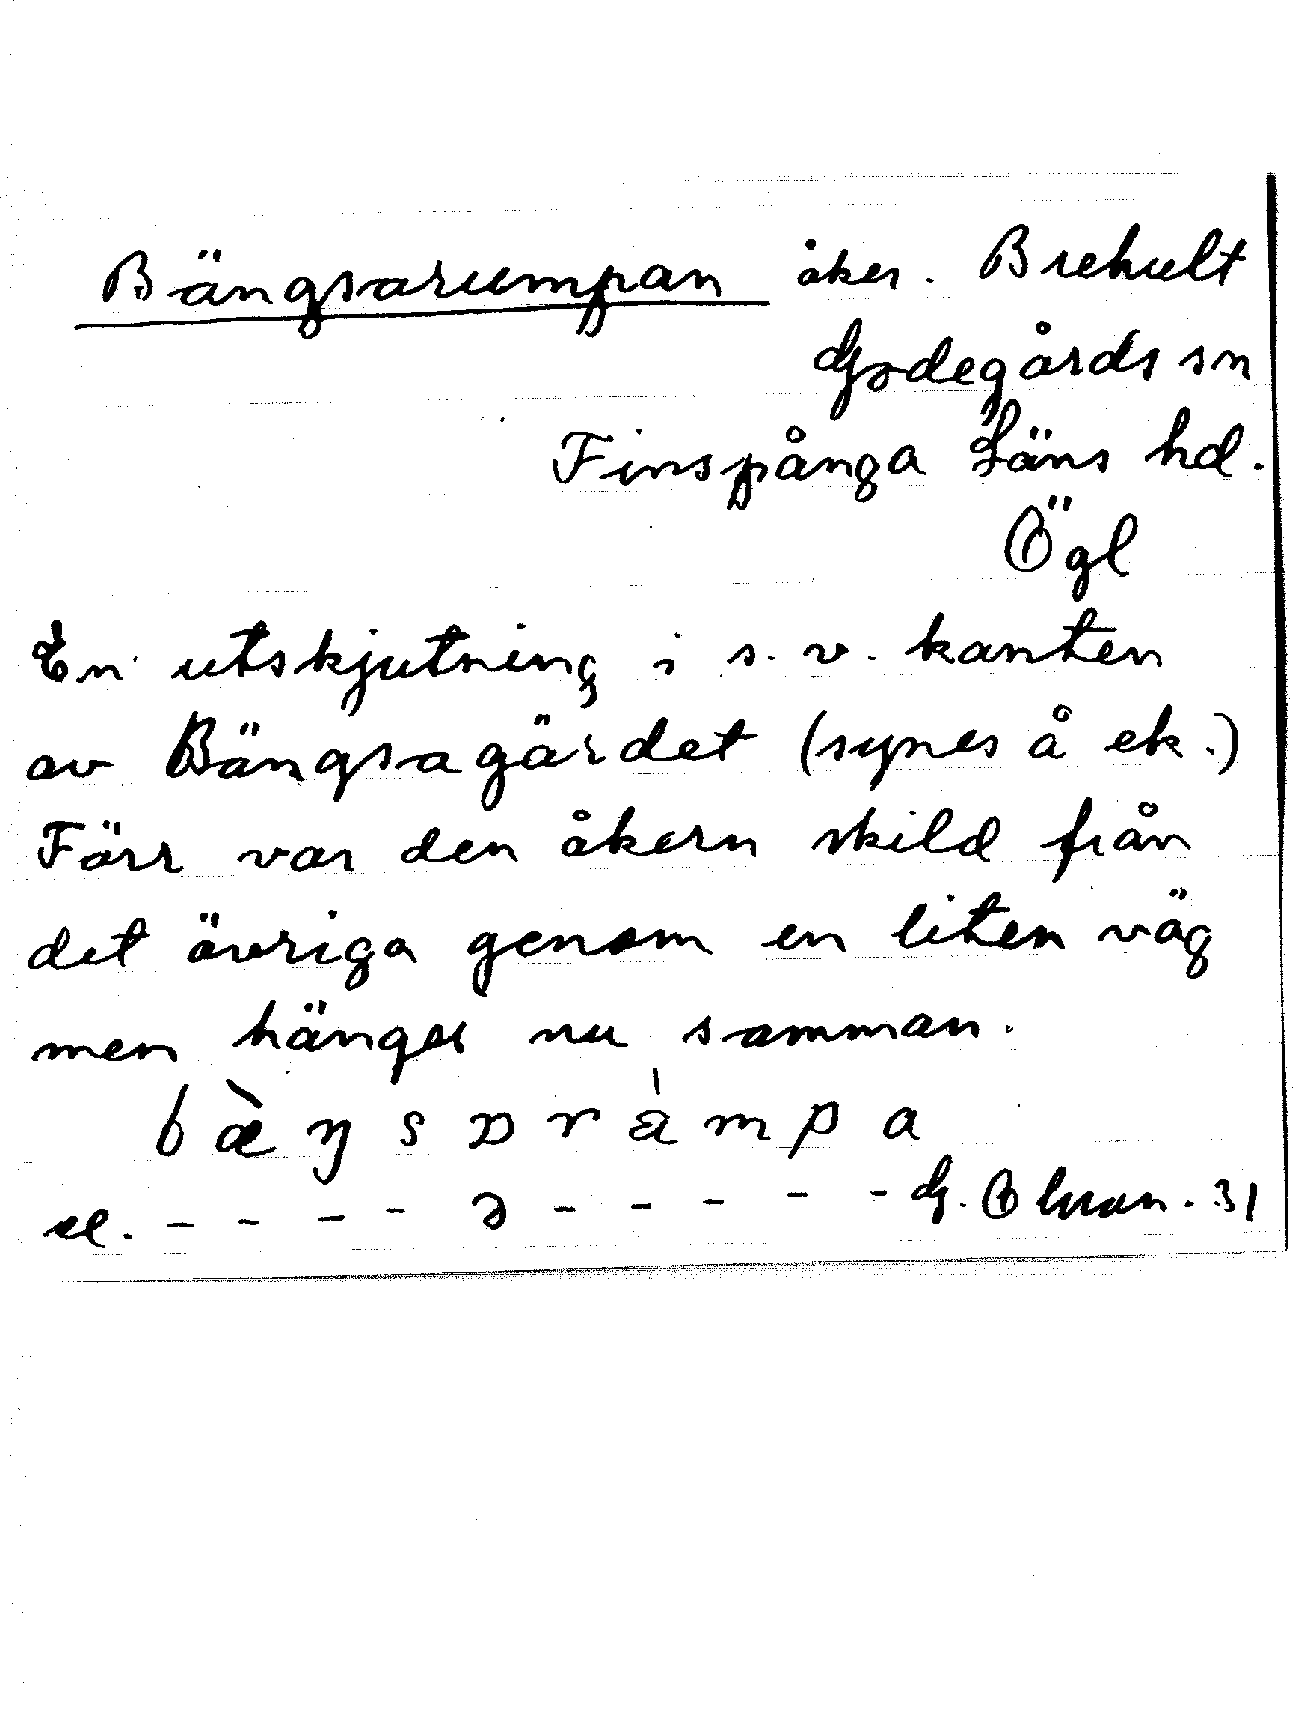 Bängsarumpan åker. Brekult
Godegårds sn
Finspånga Läns hd.
Ögl
En utskjutning i s. v. kanten
av Bängsagärdet (synes å ek.)
Förr var den åkern skild från
det övriga genom en liten väg
men hänger nu samman.
bæ̀ŋsɒràmpa
el. - - - - ə - - - - - G. Ohman. 31